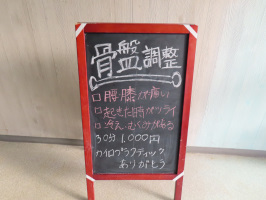 骨盤調整
□腰膝が痛い
□起きた時がツライ
□冷え、むくみがある
30分1,000円
カイロプラクティック
ありがとう